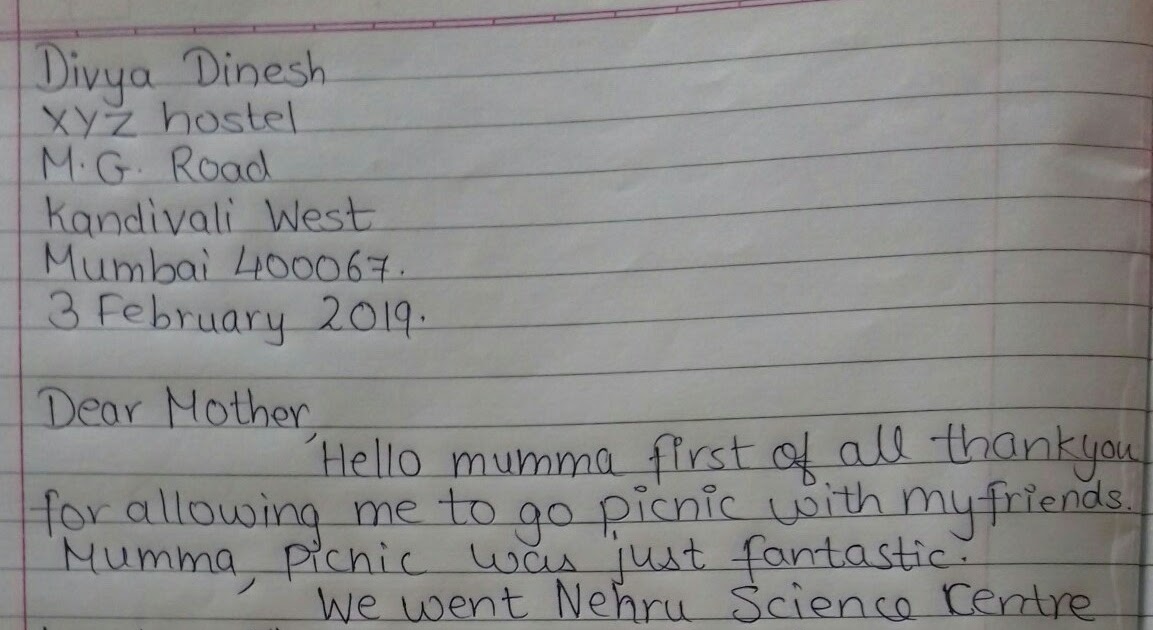 Divya Dinesh
XYZ hostel
M.G. Road
Kandivali West
Mumbai 400067.
3 February 2019.
Dear Mother,
Hello mumma first of all thankyou
for allowing me to go picnic with my friends.
Mumma, picnic was just fantastic.
We went Nehru Science Centre